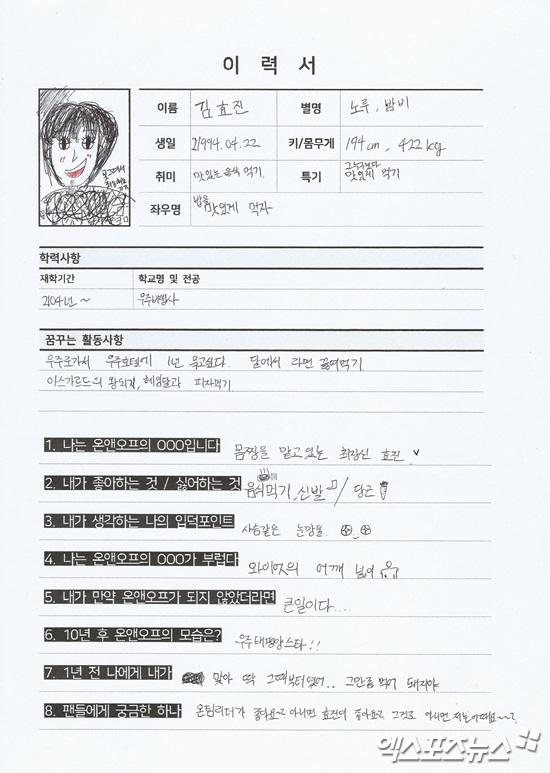 이 력 서
이름 김효진 별명 노루, 밤비
생일 21994.04.22 키/몸무게 194cm, 422kg
취미 맛있는 음식 먹기. 특기 그누구보다 맛있게 먹기
좌우명 밥을 맛있게 먹자
학력사항
재학기간 학교명 및 전공
2104년 ~ 우주비행사
꿈꾸는 활동사항
우주로가서 우주호텔에 1년 묵고싶다. 달에서 라면 끓여먹기
아스가르드의 왕되기, 헤임달과 피자먹기
1. 나는 온앤오프의 OOO입니다 몸짱을 맡고있는 최장신 효진
2. 내가 좋아하는 것 / 싫어하는 것 음식먹기, 신발 / 당근
3. 내가 생각하는 나의 입덕포인트 사슴같은 눈망울
4. 나는 온앤오프의 OOO가 부럽다 와이엇의 어깨 넓이
5. 내가 만약 온앤오프가 되지 않았더라면 큰일이다....
6. 10년 후 온앤오프의 모습은? 우주대평양스타!!
7. 1년 전 나에게 내가 맞아 딱 그때부터였어.. 그만좀 먹어 돼지야
8. 팬들에게 궁금한 하나 온탑리더가 좋아요? 아니면 효진이 좋아요? 그것도 아니면 저는어때요~?
엑스포츠뉴스